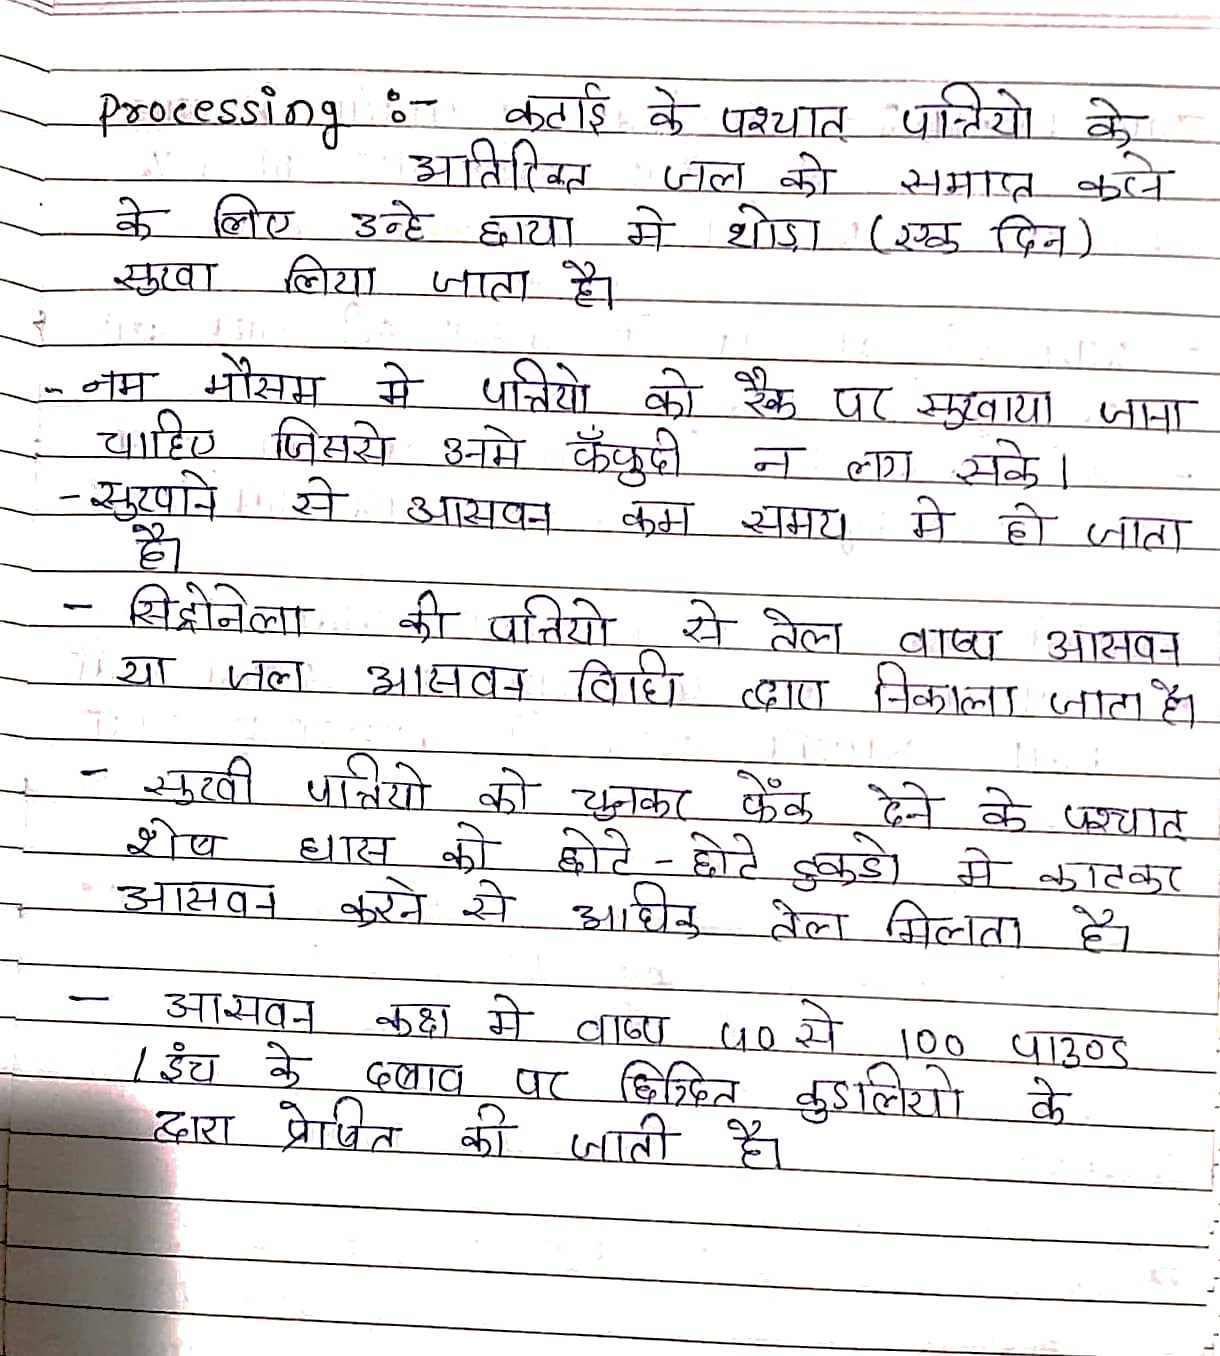 Processing :- कटाई के पश्चात पत्तियो के
अतिरिक्त जल को समाप्त करने
के लिए उन्हे छाया मे थोडा (एक दिन)
सुखा लिया जाता है।
- नम मौसम मे पत्तियो को रैक पर सुखाया जाना
चाहिए जिससे उनमे फँफुदी न लग सके।
- सुखाने से आसवन कम समय मे हो जाता
है।
- सिट्रोनेला की पत्तियो से तेल वाष्प आसवन
या जल आसवन विधि द्वारा निकाला जाता है।
- सुखी पत्तियो को चुनकर फेँक देने के पश्चात
शेष घास को छोटे - छोटे टुकडो मे काटकर
आसवन करने से अधिक तेल मिलता है।
- आसवन कक्ष मे वाष्प 40 से 100 पाउण्ड
/ इंच के दबाव पर छिद्रित कुडलियो के
द्वारा प्रेषित की जाती है।